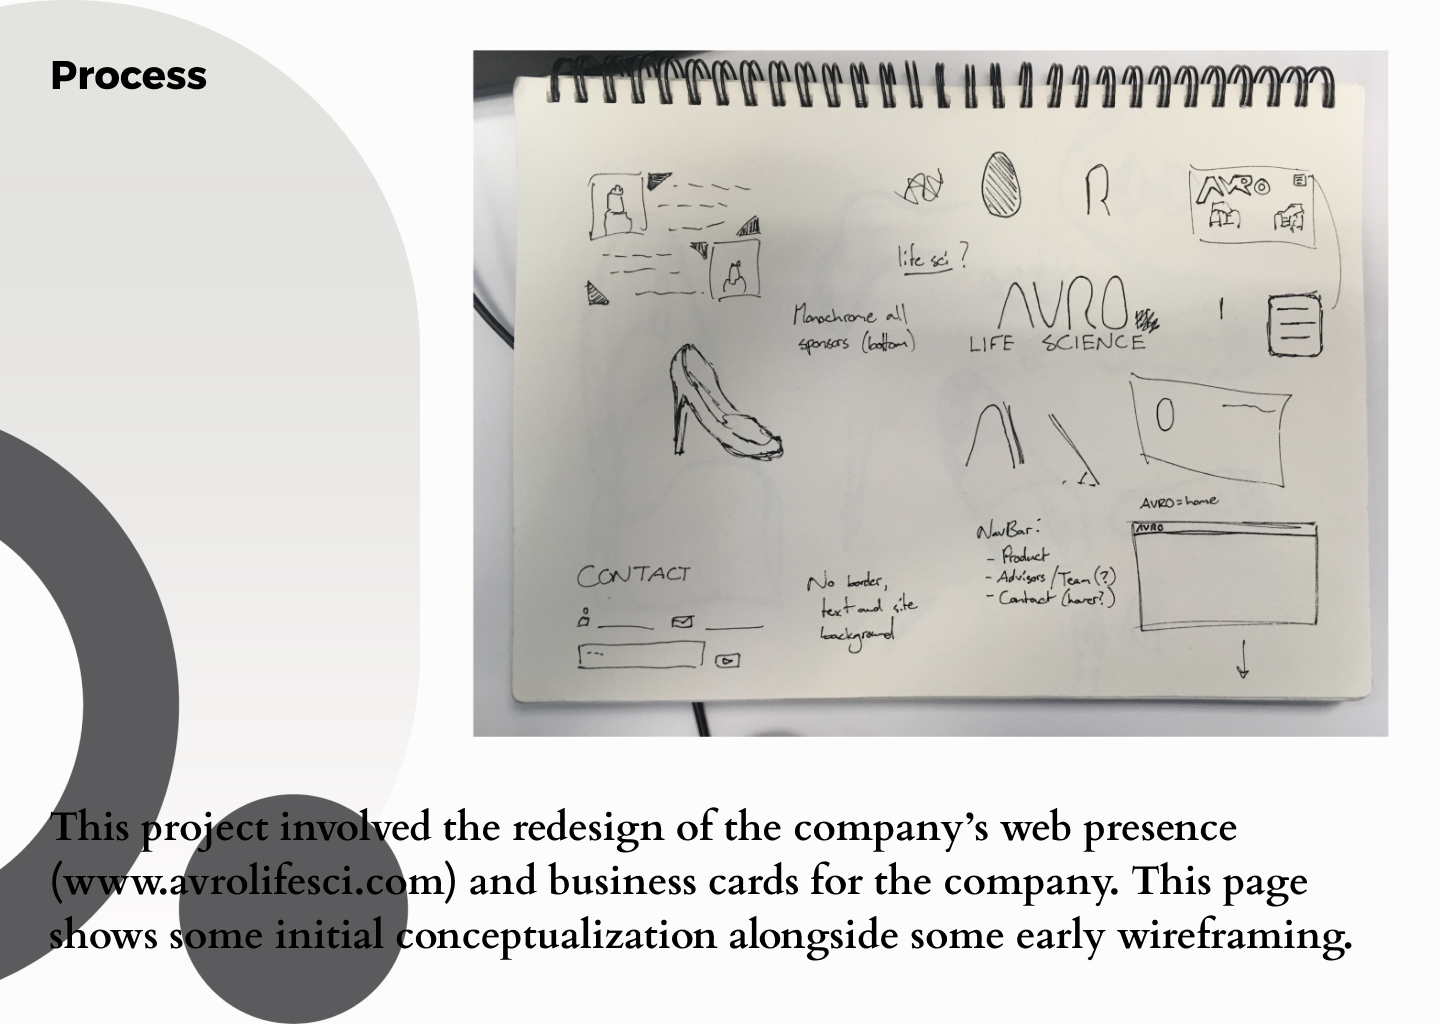 Process
AVRO
R
life sci?
AVRO
LIFE SCIENCE
Monochrome all
sponsors (bottom)
AVRO = home
AVRO
NavBar:
- Product
- Advisors/Team(?)
- Contact (hover?)
CONTACT
No border,
text and site
background
This project involved the redesign of the company’s web presence
(www.avrolifesci.com) and business cards for the company. This page
shows some initial conceptualization alongside some early wireframing.